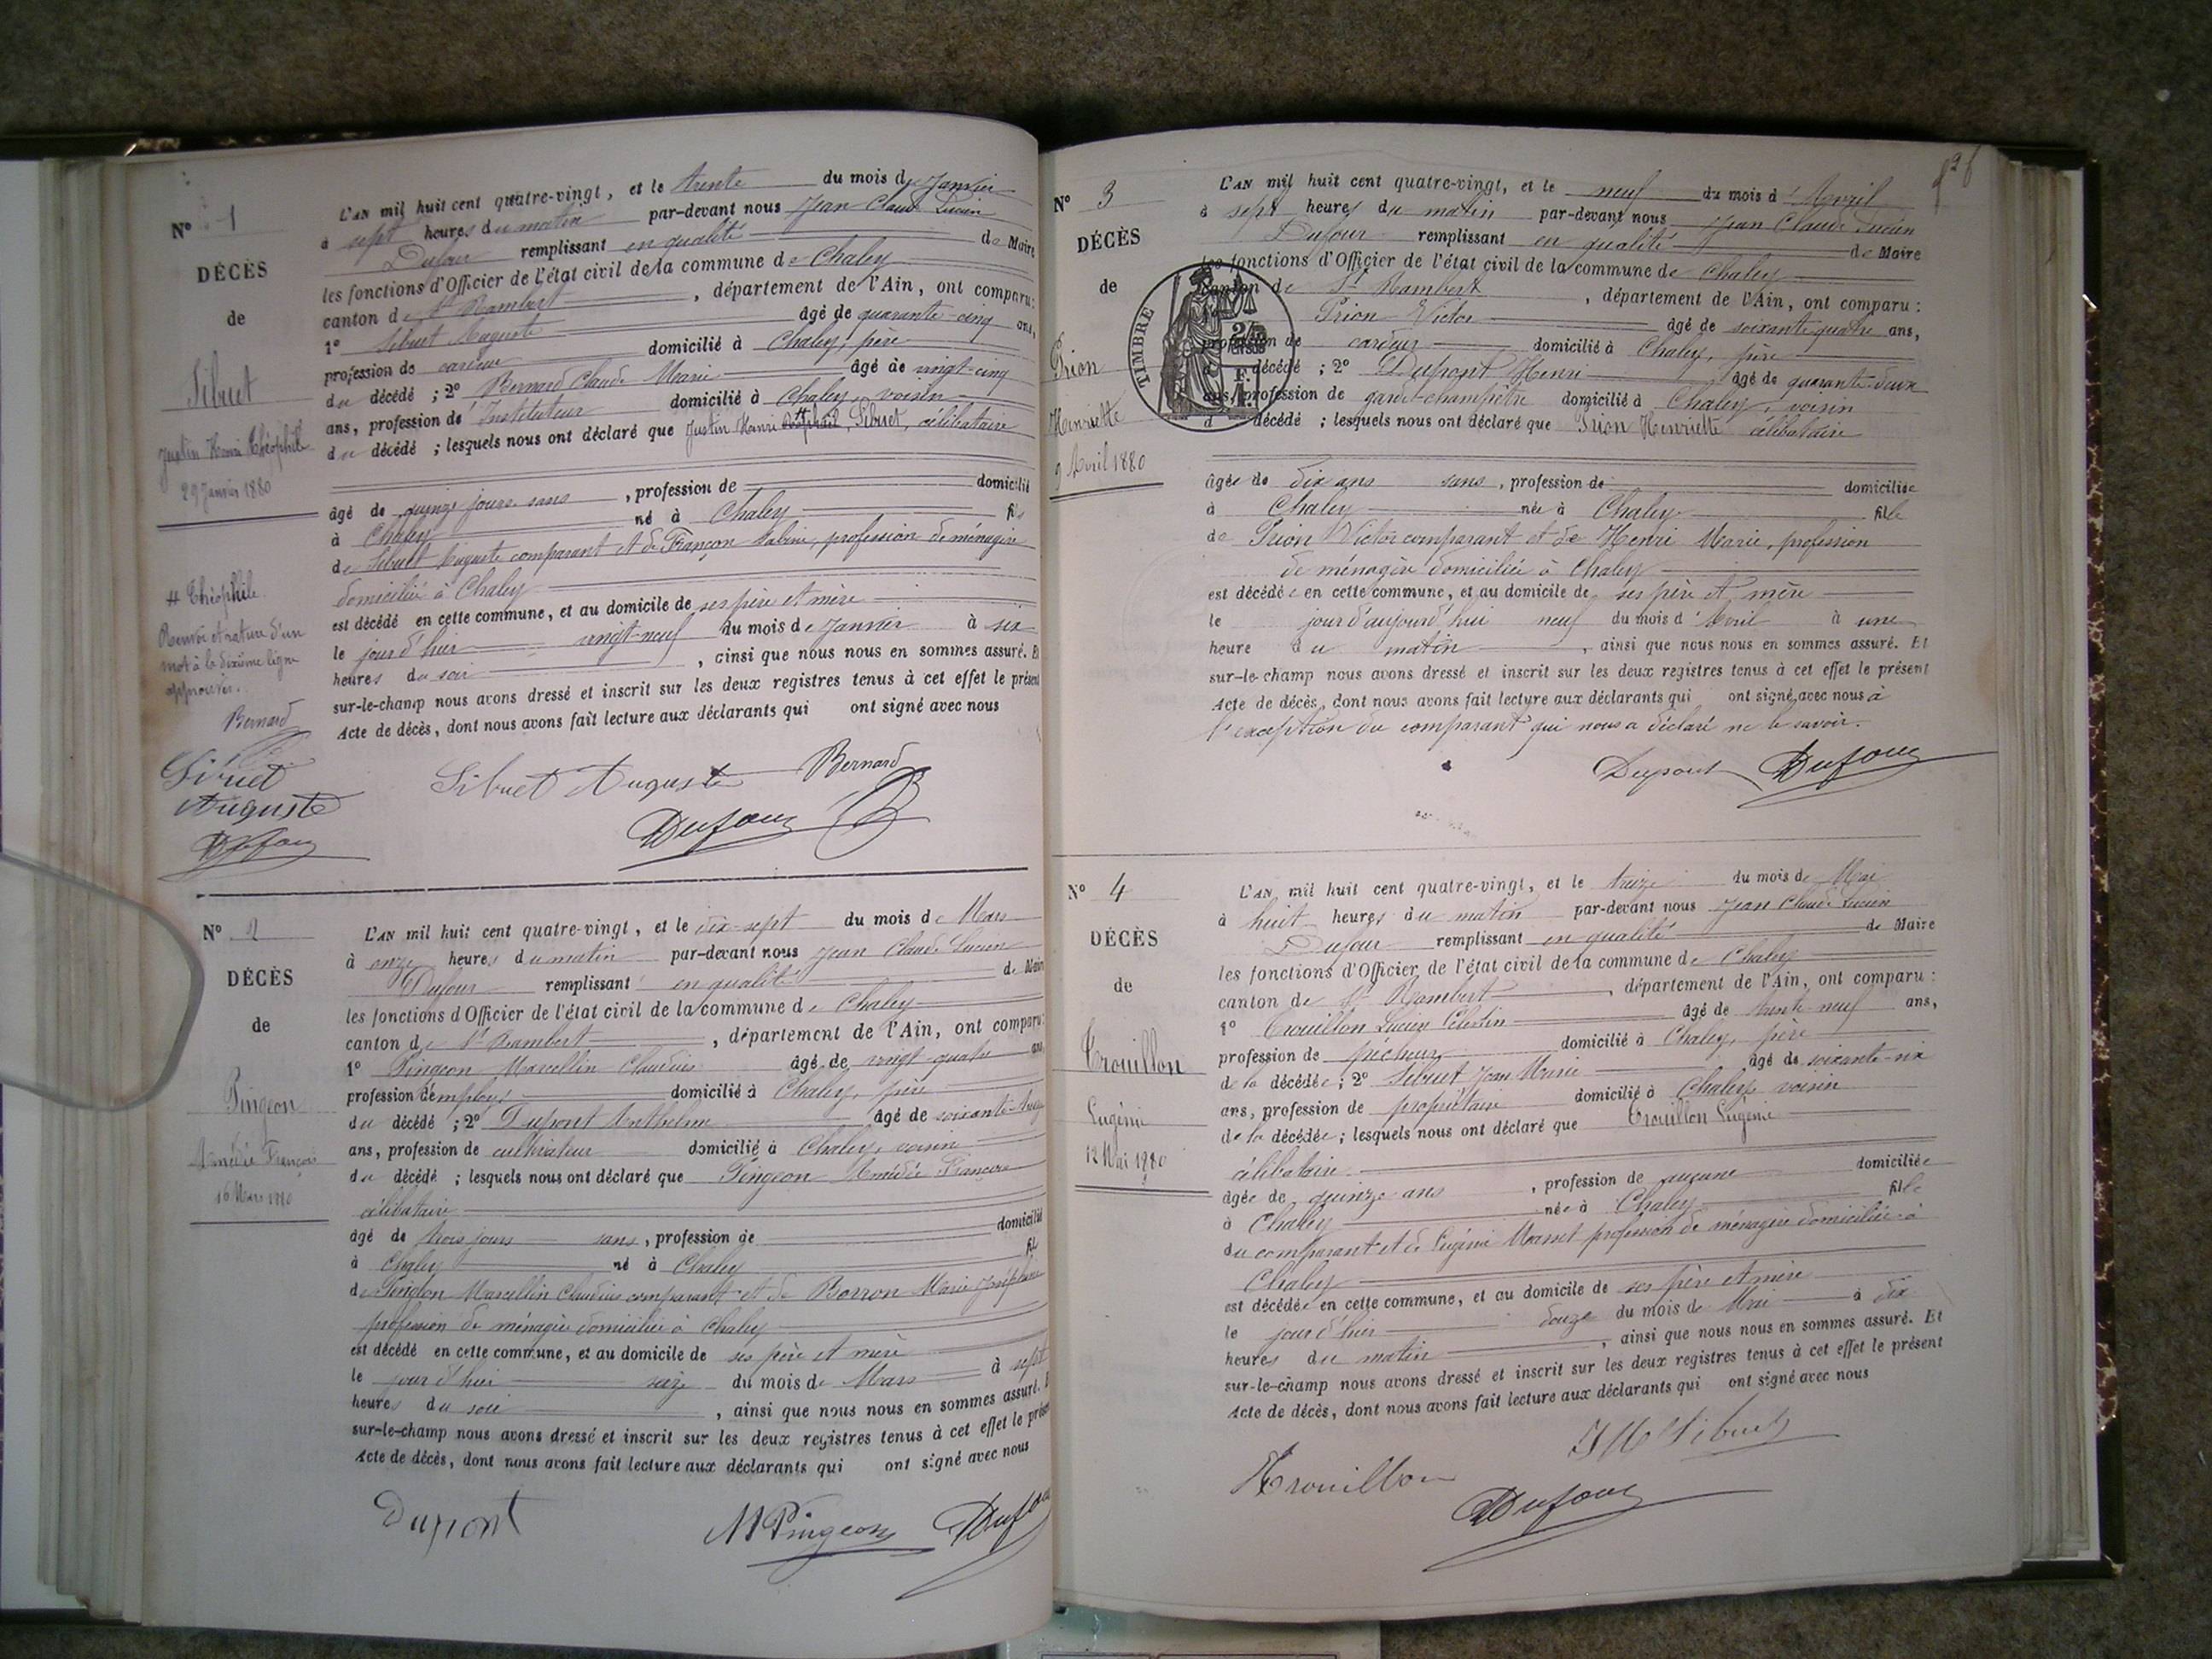 N° 1
DÉCÈS
de
Sibuet
Justin Henri Théophile
29 Janvier 1880
# Théophile.
Renvoi et rature d'un
mot à la dixième ligne
approuvés.
Bernard
Sibuet
Auguste
Dufour
L'AN mil huit cent quatre-vingt, et le trente du mois de Janvier
à sept heures du matin par-devant nous Jean Claude Lucien
Dufour remplissant en qualité de Maire
les fonctions d'Officier de l'état civil de la commune de Chaley
canton de St Rambert, département de l'Ain, ont comparu:
1° Sibuet Auguste âgé de quarante-cinq ans,
profession de cardeur domicilié à Chaley, père
du décédé; 2° Bernard Claude Marie âgé de vingt-cinq
ans, profession d'Instituteur domicilié à Chaley, voisin
du décédé; lesquels nous ont déclaré que Justin Henri # Sibuet, célibataire
âgé de quinze jours sans, profession de domicilié
à Chaley né à Chaley fils
de Sibuet Auguste comparant et de Françon Sabine, profession de ménagère
domiciliée à Chaley
est décédé en cette commune, et au domicile de ses père et mère
le jour d'hier vingt-neuf du mois de Janvier à six
heures du soir, ainsi que nous nous en sommes assuré. Et
sur-le-champ nous avons dressé et inscrit sur les deux registres tenus à cet effet le présent
Acte de décès, dont nous avons fait lecture aux déclarants qui ont signé avec nous
Sibuet Auguste Bernard
Dufour
N° 2
DÉCÈS
de
Pingeon
Amédée François
16 Mars 1880
L'AN mil huit cent quatre-vingt, et le dix-sept du mois de Mars
à onze heures du matin par-devant nous Jean Claude Lucien
Dufour remplissant en qualité de Maire
les fonctions d'Officier de l'état civil de la commune de Chaley
canton de St Rambert, département de l'Ain, ont comparu:
1° Pingeon Marcellin Claudius âgé de vingt-quatre ans
profession d'employé domicilié à Chaley, père
du décédé; 2° Dupont Anthelme âgé de soixante-treize
ans, profession de cultivateur domicilié à Chaley, voisin
du décédé; lesquels nous ont déclaré que Pingeon Amédée François
célibataire
âgé de trois jours sans, profession de domicilié
à Chaley né à Chaley fils
de Pingeon Marcellin Claudius comparant et de Borron Marie Joséphine
profession de ménagère domiciliée à Chaley
est décédé en cette commune, et au domicile de ses père et mère
le jour d'hier seize du mois de Mars à sept
heures du soir, ainsi que nous nous en sommes assuré. E
sur-le-champ nous avons dressé et inscrit sur les deux registres tenus à cet effet le présent
Acte de décès, dont nous avons fait lecture aux déclarants qui ont signé avec nous
Dupont M Pingeon Dufour
N° 3
DÉCÈS
de
Prion
Henriette
9 Avril 1880
TIMBRE
L'AN mil huit cent quatre-vingt, et le neuf du mois d'Avril
à sept heures du matin par-devant nous Jean Claude Lucien
Dufour remplissant en qualité de Maire
les fonctions d'Officier de l'état civil de la commune de Chaley
canton de St Rambert, département de l'Ain, ont comparu:
Prion Victor âgé de soixante quatre ans,
profession de cardeur domicilié à Chaley, père
décédé; 2° Dupont Henri âgé de quarante-deux
ans, profession de garde-champêtre domicilié à Chaley, voisin
d décédé; lesquels nous ont déclaré que Prion Henriette célibataire
âgée de dix ans sans, profession de domiciliée
à Chaley née à Chaley fille
de Prion Victor comparant et de Henri Marie, profession
de ménagère domiciliée à Chaley
est décédée en cette commune, et au domicile de ses père et mère
le jour d'aujourd'hui neuf du mois d'Avril à une
heure du matin, ainsi que nous nous en sommes assuré. Et
sur-le-champ nous avons dressé et inscrit sur les deux registres tenus à cet effet le présent
Acte de décès, dont nous avons fait lecture aux déclarants qui ont signé, avec nous à
l'exception du comparant qui nous a déclaré ne le savoir.
Dupont Dufour
N° 4
DÉCÈS
de
Trouillon
Eugénie
12 Mai 1880
L'AN mil huit cent quatre-vingt, et le treize du mois de Mai
à huit heures du matin par-devant nous Jean Claude Lucien
Dufour remplissant en qualité de Maire
les fonctions d'Officier de l'état civil de la commune de Chaley
canton de St Rambert, département de l'Ain, ont comparu:
1° Trouillon Lucien Célestin âgé de trente-neuf ans,
profession de pêcheur domicilié à Chaley, père
de la décédée; 2° Sibuet Jean Marie âgé de soixante-six
ans, profession de propriétaire domicilié à Chaley voisin
de la décédée; lesquels nous ont déclaré que Trouillon Eugénie
célibataire
âgée de quinze ans, profession de aucune domiciliée
à Chaley née à Chaley fille
du comparant et de Eugénie profession de ménagère domiciliée à
Chaley
est décédée en cette commune, et au domicile de ses père et mère
le jour d'hier douze du mois de Mai à dix
heures du matin, ainsi que nous nous en sommes assuré. Et
sur-le-champ nous avons dressé et inscrit sur les deux registres tenus à cet effet le présent
Acte de décès, dont nous avons fait lecture aux déclarants qui ont signé avec nous
J M Sibuet
Trouillon
Dufour